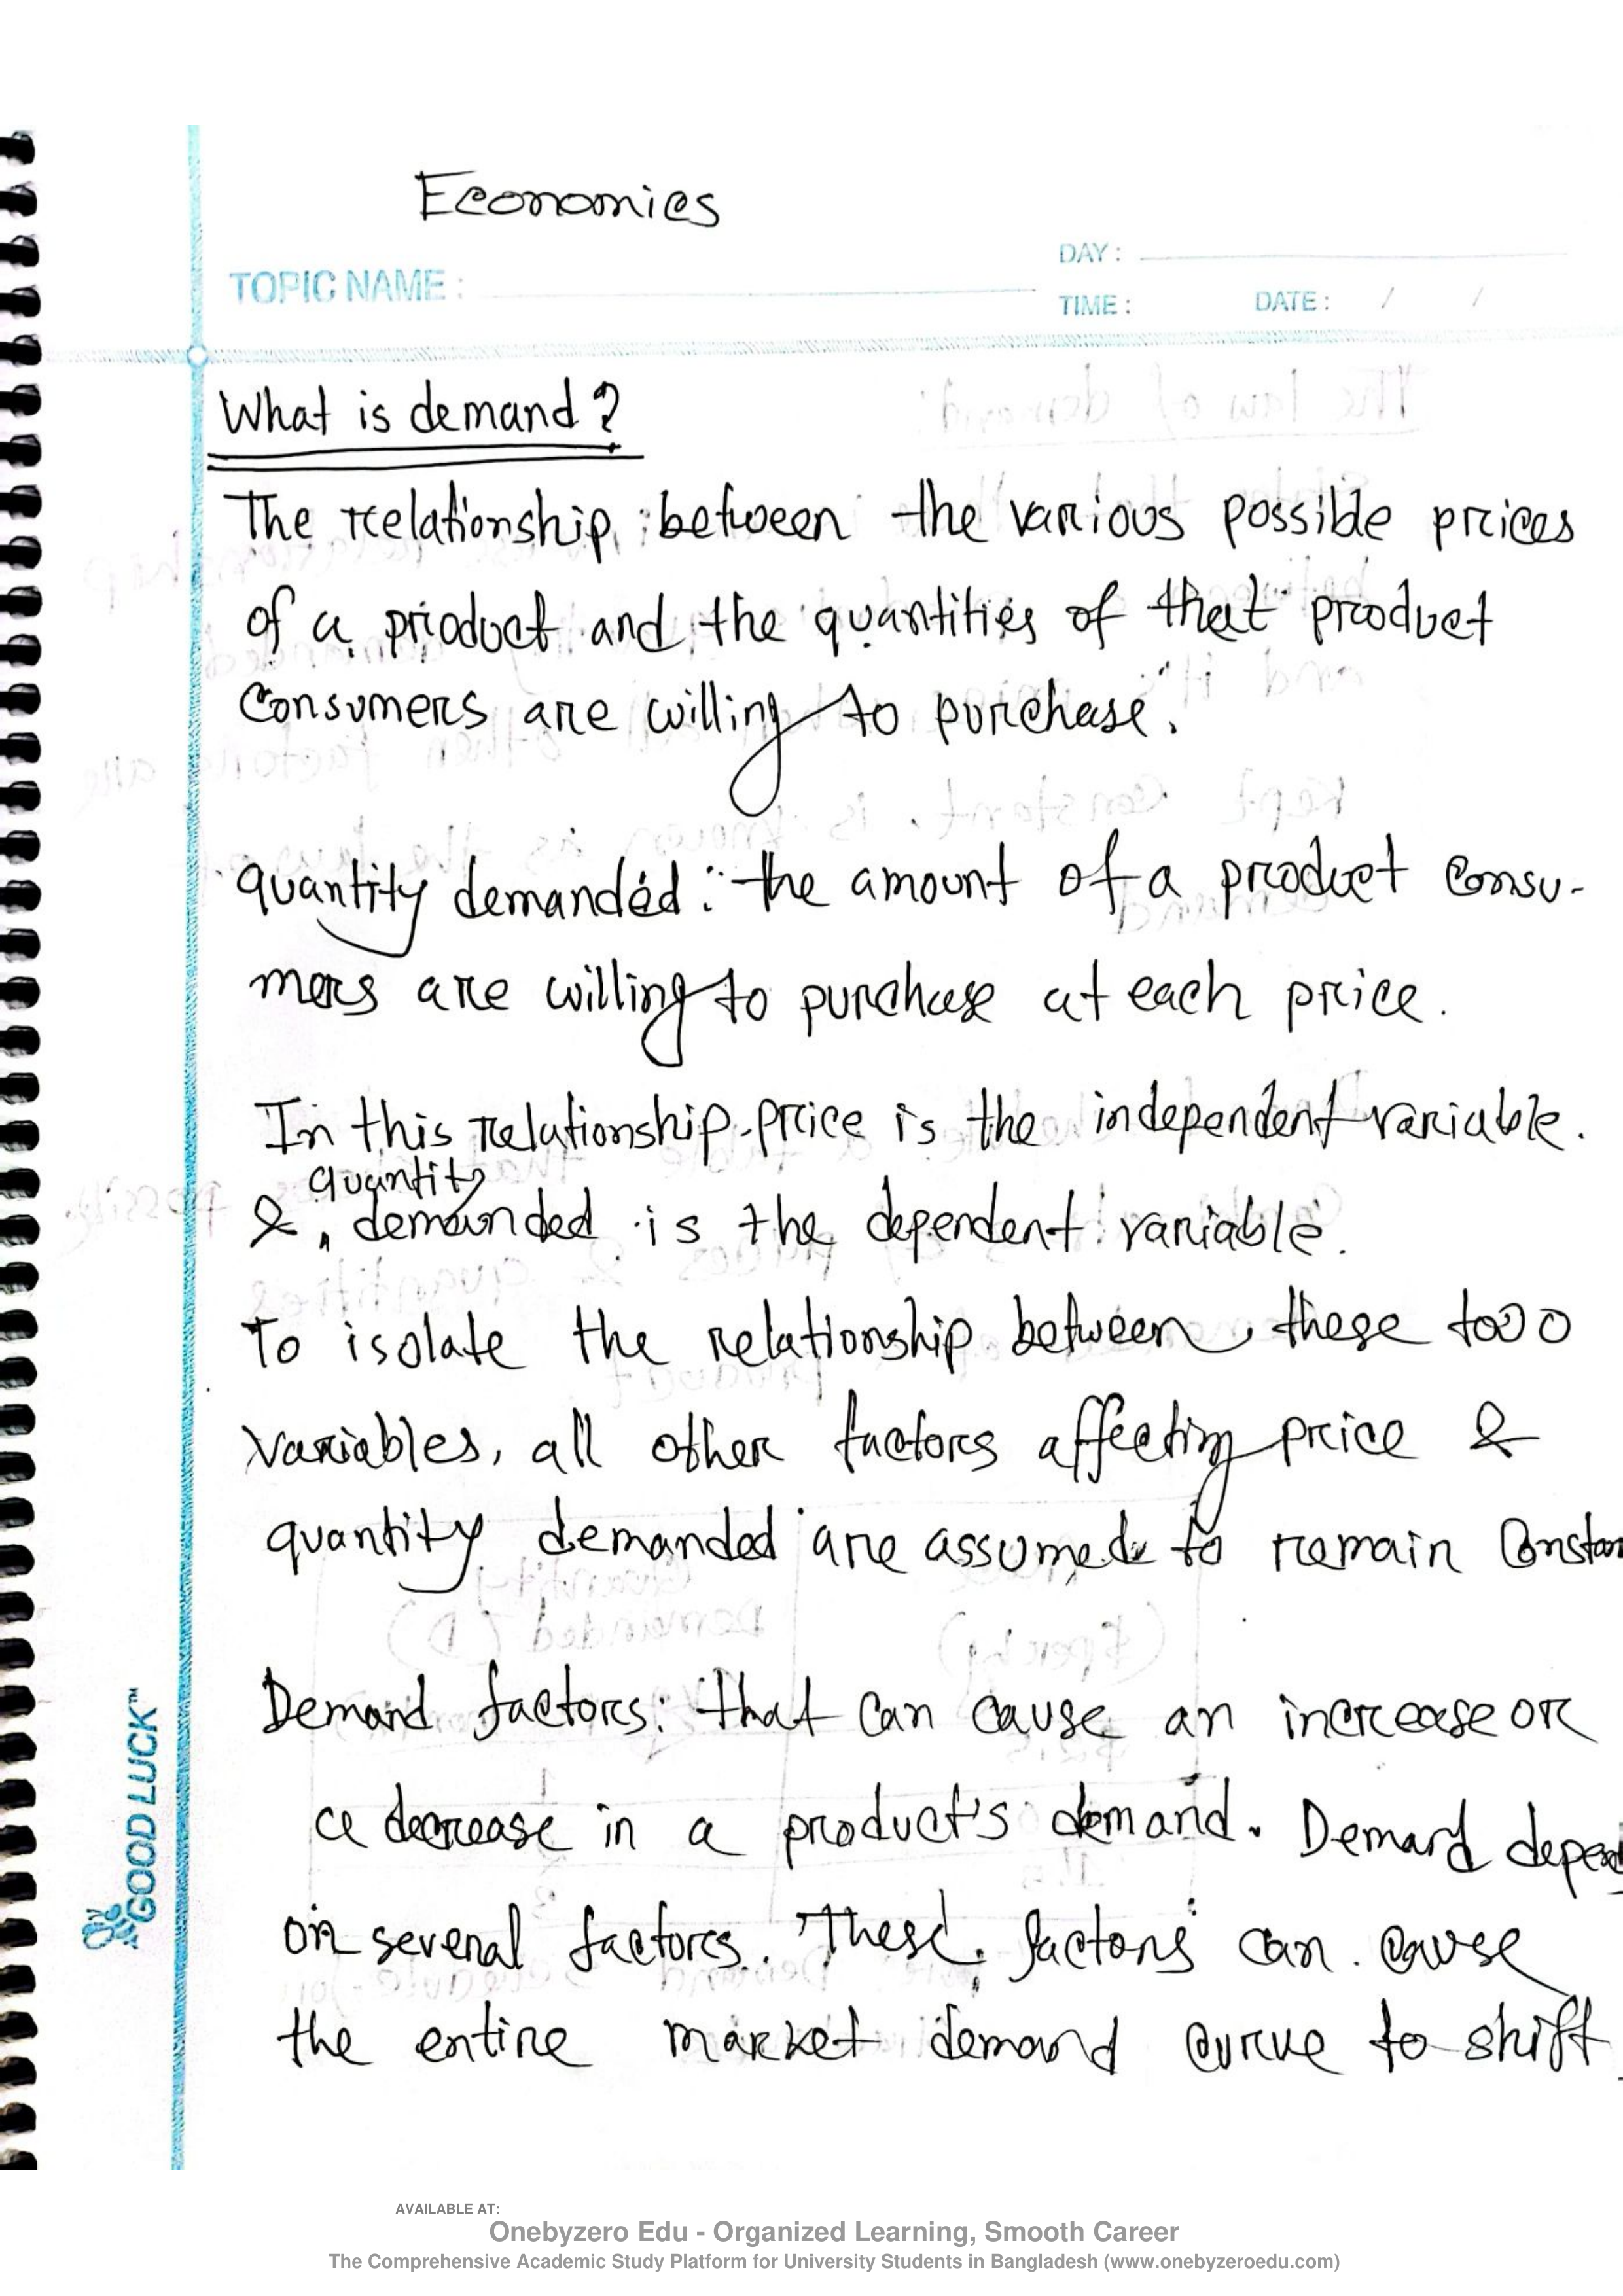 Economics
DAY :
TOPIC NAME :
TIME : DATE : / /
What is demand?
The relationship between the various possible prices
of a product and the quantities of that product
consumers are willing to purchase.
quantity demanded: the amount of a product consu-
mers are willing to purchase at each price.
In this relationship price is the independent variable.
quantity
& demanded is the dependent variable.
To isolate the relationship between these two
variables, all other factors affecting price &
quantity demanded are assumed to remain Constan
Demand factors: that can cause an increase or
a decrease in a product's demand. Demand depend
on several factors. These factors can cause
the entire market demand curve to shift
GOOD LUCK™
AVAILABLE AT:
Onebyzero Edu - Organized Learning, Smooth Career
The Comprehensive Academic Study Platform for University Students in Bangladesh (www.onebyzeroedu.com)